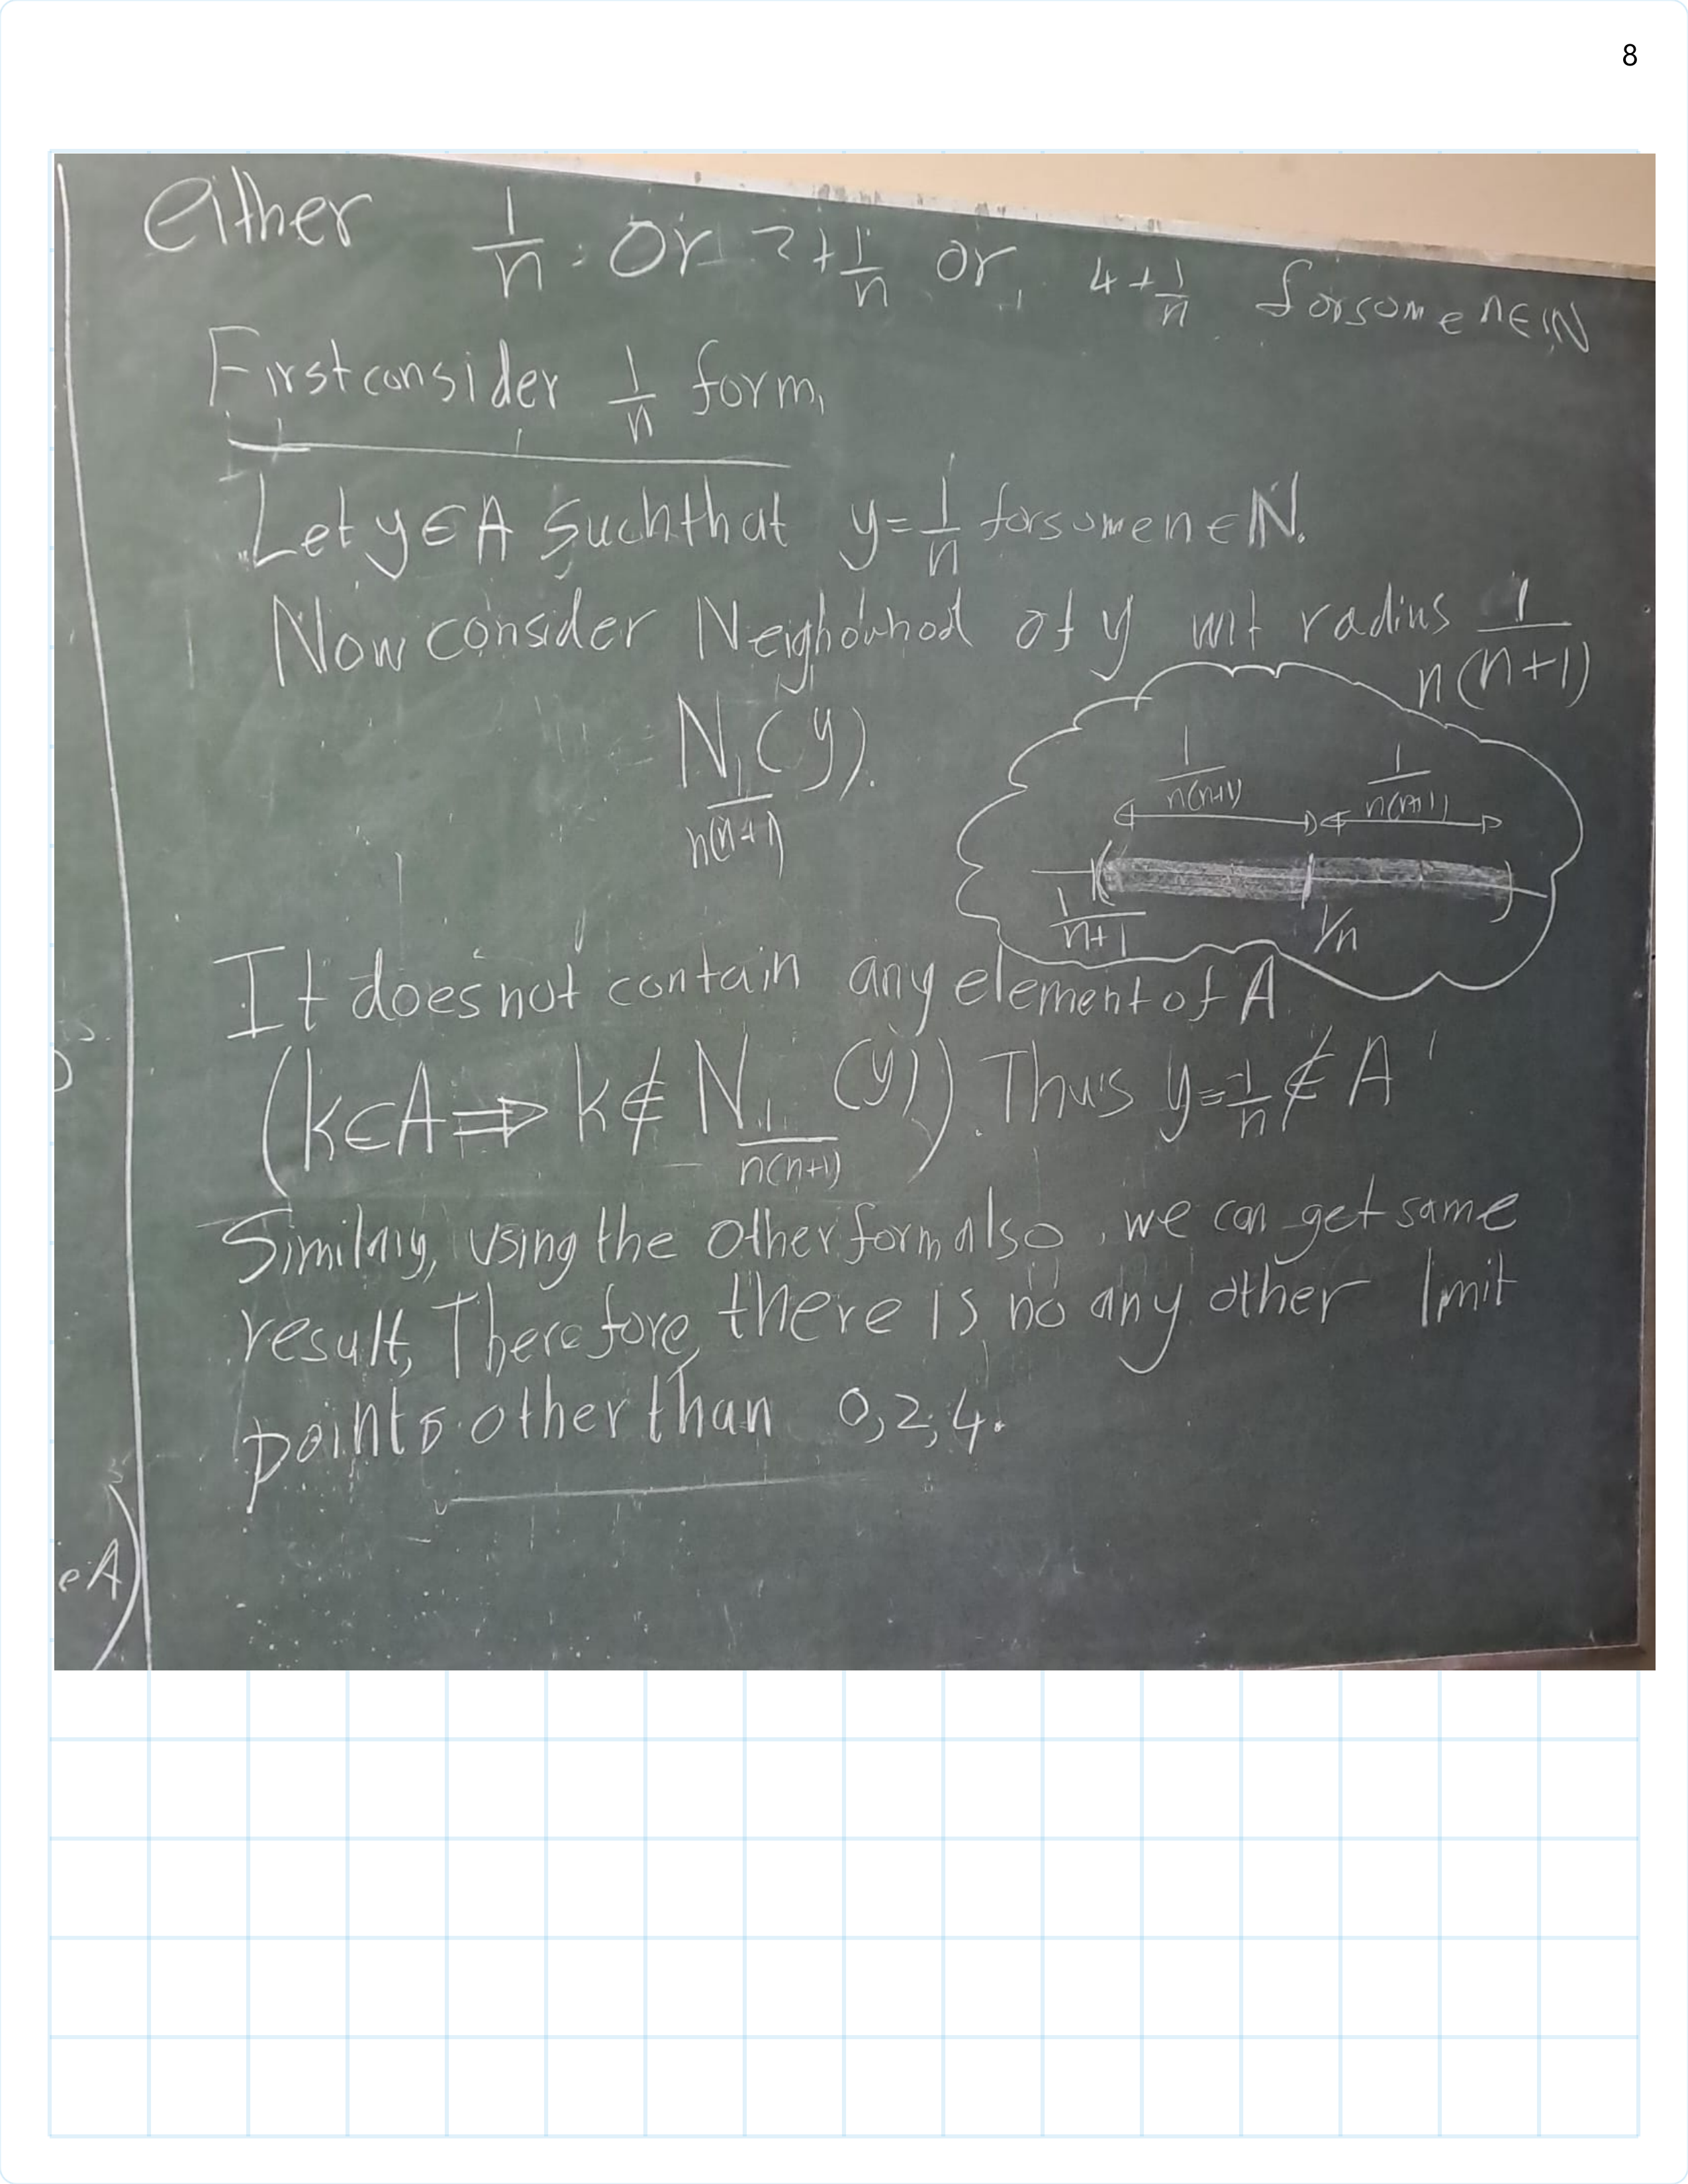 8
either 1/n or 2+1/n or 4+1/n forsome n∈ℕ
First consider 1/n form,
Let y∈A Such that y=1/n for sume n∈N.
Now consider Neighouhod of y wit radius 1/n(n+1)
N_{1/n(n+1)}(y).
1/n(n+1) 1/n(n+1)
1/n+1 1/n
It does not contain any element of A
(k∈A ⇒ k∉N_{1/n(n+1)}(y)). Thus y=1/n ∉ A'
Similaly, using the other form also, we can get same
result, Therefore, there is no any other limit
points other than 0,2,4.
s.
∈A)